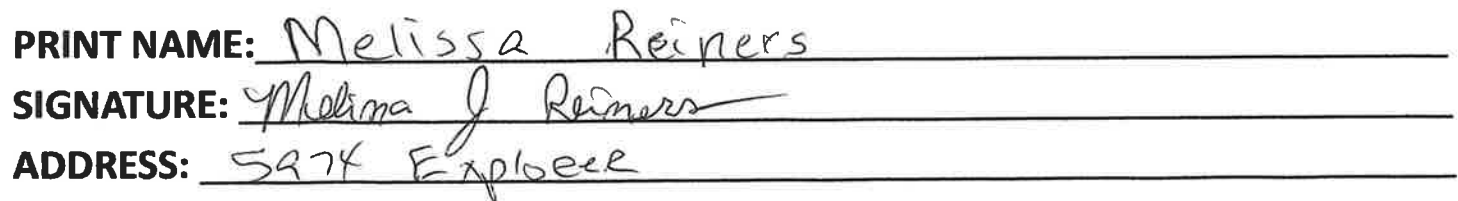 PRINT NAME: Melissa Reiners
SIGNATURE: Melissa J Reiners
ADDRESS: 5974 Explorer